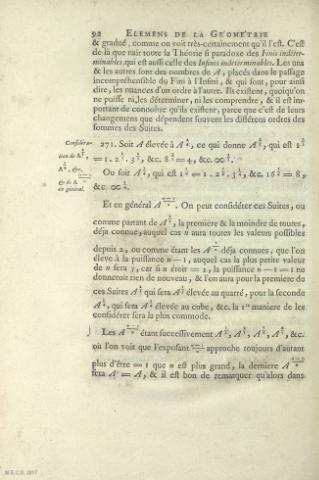 92 ELEMENS DE LA GEOMETRIE
& gradué, comme on voit très-certainement qu'il l'est. C'est
de là que naît toute la Théorie si paradoxe des Finis indéter-
minables, qui est aussi celle des Infinis indéterminables. Les uns
& les autres sont des nombres de A, placés dans le passage
incomprehensible du Fini à l'Infini, & qui sont, pour ainsi
dire, les nuances d'un ordre à l'autre. Ils existent, quoiqu'on
ne puisse ni les déterminer, ni les comprendre, & il est im-
portant de connoître qu'ils existent, parce que c'est de leurs
changemens que dépendent souvent les différens ordres des
sommes des Suites.
Considéra-
tion de
&c.
& de
en général.
271. Soit A élevée à
, ce qui donne
, qui est
&c.
Ou soit
, qui est
&c.
Et en général
. On peut considérer ces Suites, ou
comme partant de
, la premiére & la moindre de toutes,
déja connue, auquel cas n aura toutes les valeurs possibles
depuis 2, ou comme étant les
déja connues, que l'on
éleve à la puissance n — 1, auquel cas la plus petite valeur
de n sera 3, car si n étoit = 2, la puissance n — 1 = 1 ne
donneroit rien de nouveau, & l'on aura pour la premiére de
ces Suites
qui sera
élevée au quarré, pour la seconde
, qui sera
élevée au cube, &c. la 1re maniére de les
considérer sera la plus commode.
Les
étant successivement
&c.
où l'on voit que l'exposant
approche toujours d'autant
plus d'être = 1 que n est plus grand, la derniére
sera A = A, & il est bon de remarquer qu'alors dans